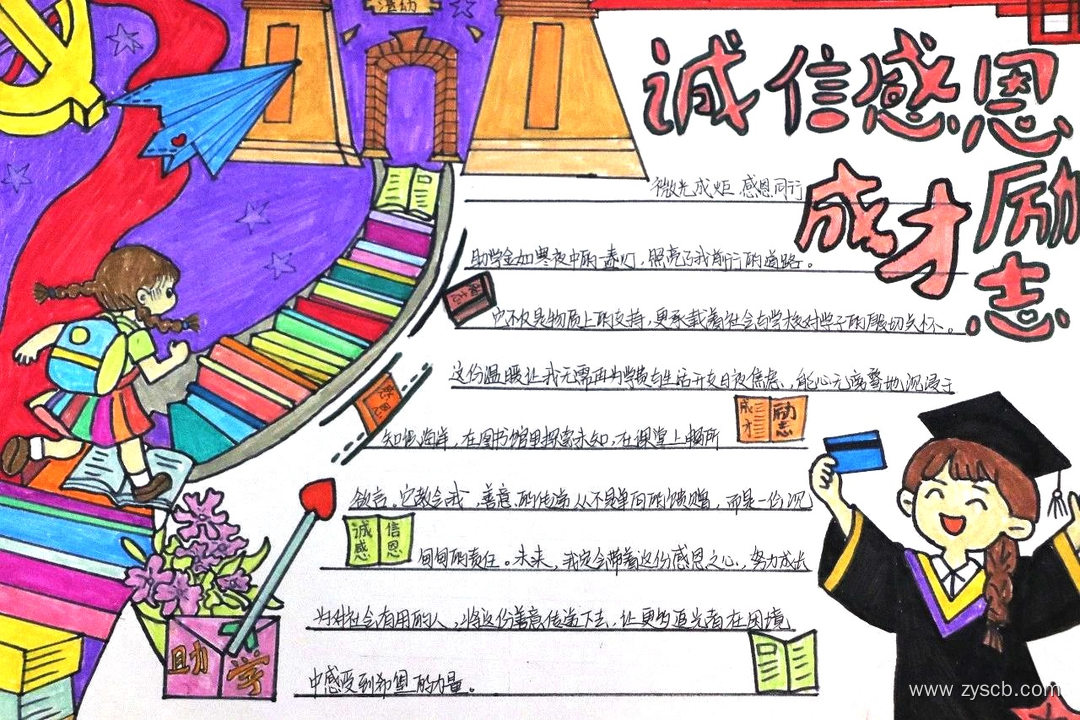 活动
诚信感恩
成才励志
微光成炬 感恩同行
助学金如寒夜中的一盏灯，照亮了我前行的道路。
诚信
它不仅是物质上的支持，更承载着社会与学校对学子的殷切关怀。
这份温暖让我无需再为学费与生活开支日夜焦虑，能心无旁骛地沉浸于
感恩
成才
励志
知识海洋，在图书馆里探索未知，在课堂上畅所
欲言。它教会我，善意的传递从不是单向的馈赠，而是一份沉
诚信
感恩
甸甸的责任。未来，我定会带着这份感恩之心，努力成长
为对社会有用的人，将这份善意传递下去，让更多追光者在困境
中感受到希望的力量。
助学
www.zyscb.com